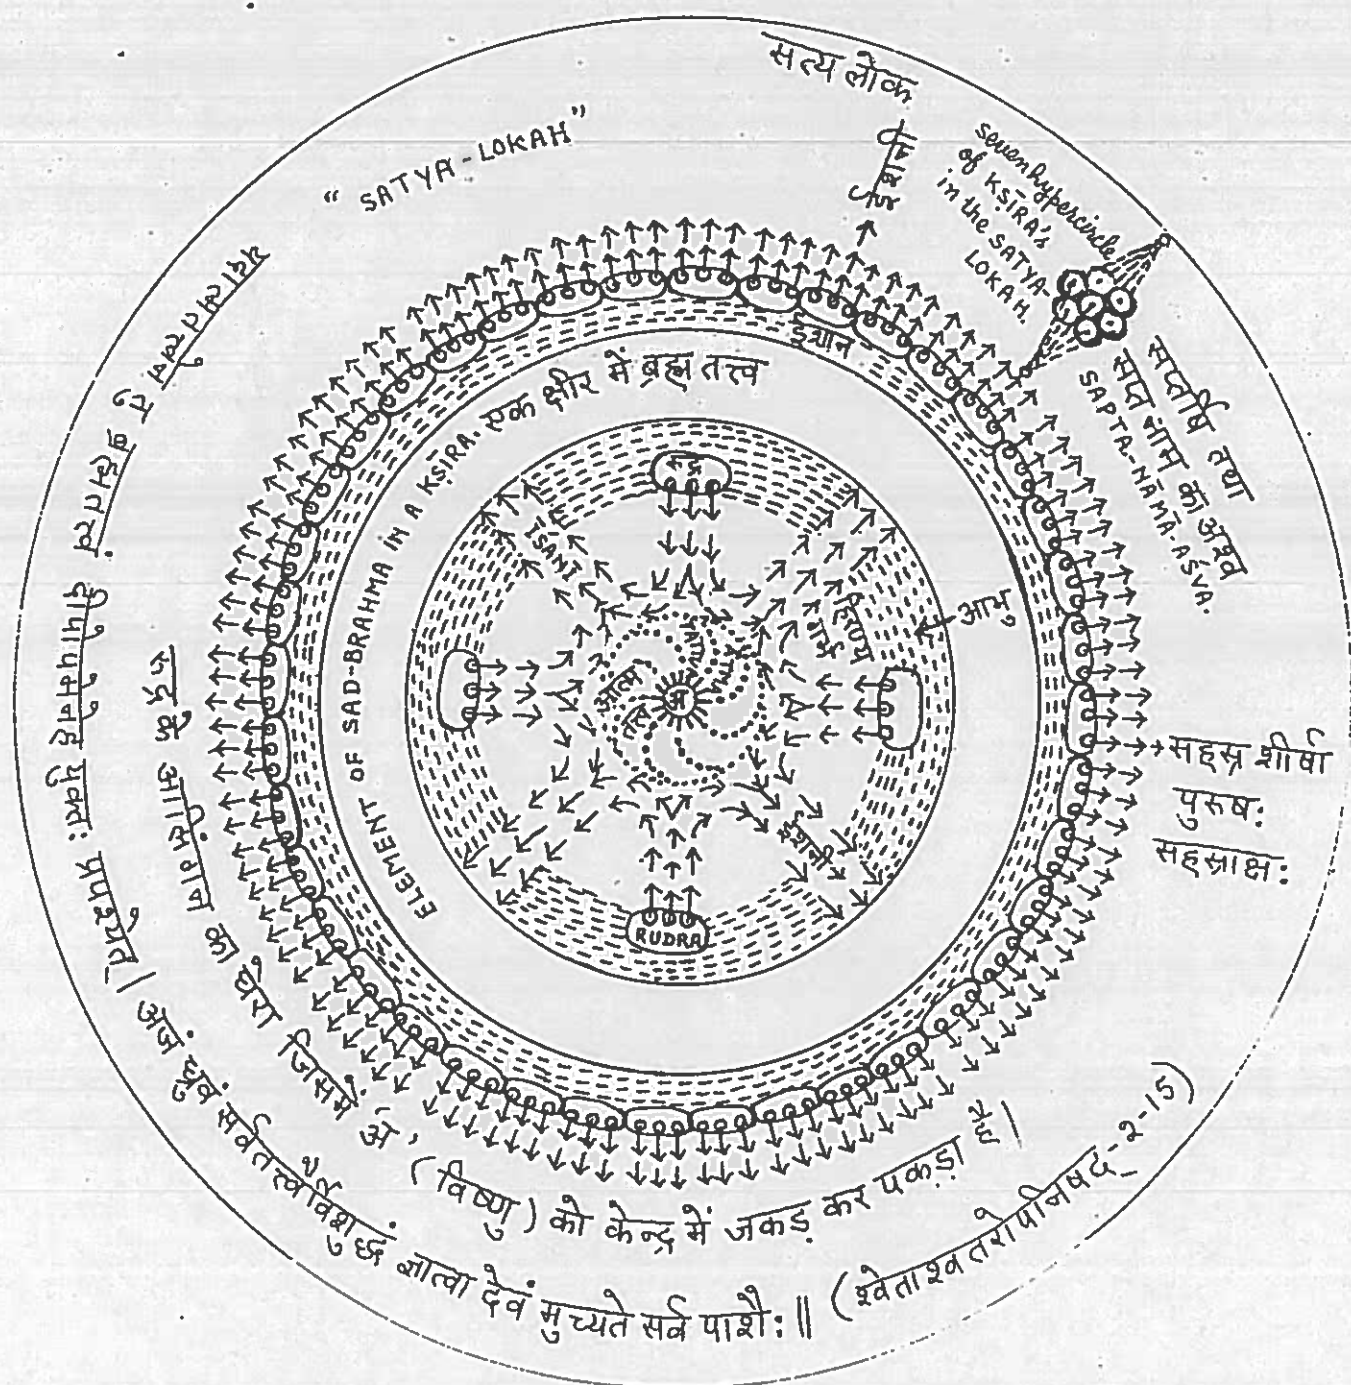 सत्य लोक
" SATYA-LOKAH "
ईशानी
seven hypercircle
of KṢĪRA's
in the SATYA-
LOKAH.
सप्तर्षि तथा
सप्त नाम का अश्व
SAPTA-NĀMĀ-AŚVA.
ईशान
ELEMENT OF SAD-BRAHMA IN A KṢĪRA. एक क्षीर में ब्रह्म तत्त्व
रुद्र
ISANI
हिरण्य
गर्भ
आभु
आत्म
तत्व
अ
ईशानी
RUDRA
सहस्र शीर्षा
पुरुषः
सहस्राक्षः
रुद्र के आलिंगन का घेरा जिसमें अ' (विष्णु) को केन्द्र में जकड़ कर पकड़ा है।
यदात्मतत्वेन तु ब्रह्मतत्वं दीपोपमेनेह युक्तः प्रपश्येत्। अजं ध्रुवं सर्वतत्त्वैर्विशुद्धं ज्ञात्वा देवं मुच्यते सर्व पाशैः॥ (श्वेताश्वतरोपनिषद-2-15)